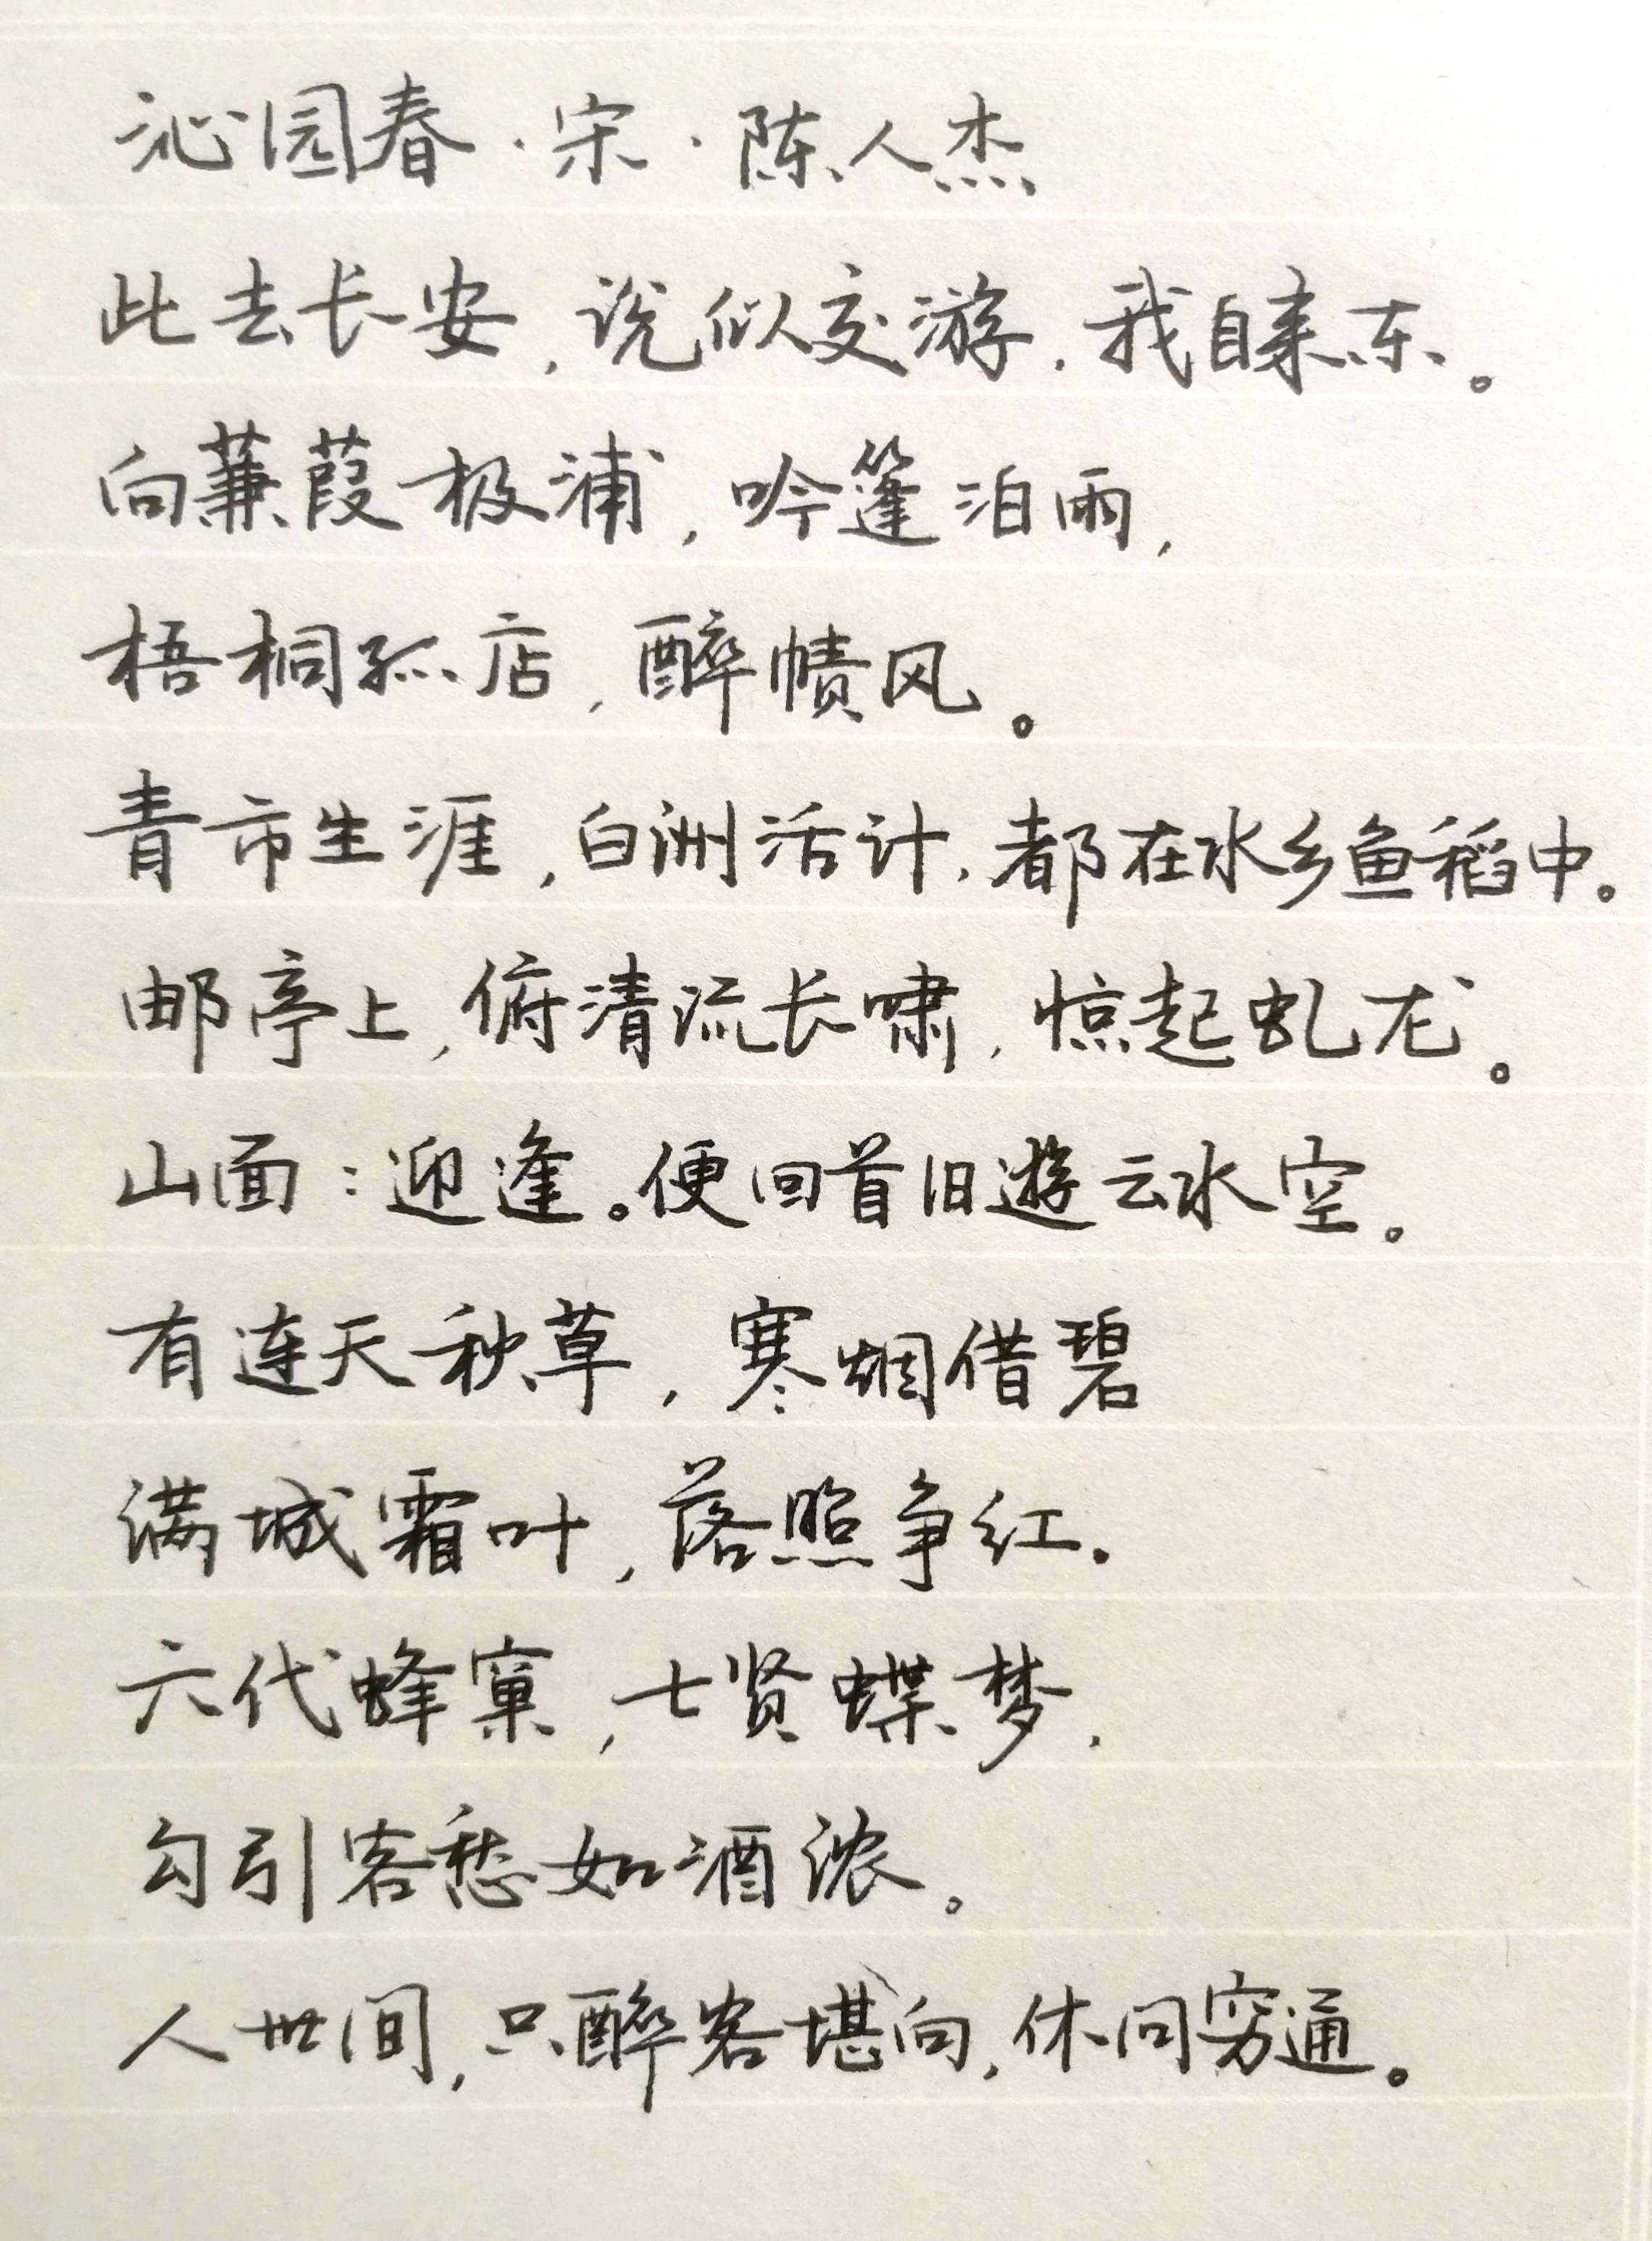 沁园春·宋·陈人杰
此去长安，说似交游，我自来东。
向蒹葭极浦，吟篷泊雨，
梧桐孤店，醉帻风。
青市生涯，白洲活计，都在水乡鱼稻中。
邮亭上，俯清流长啸，惊起虬龙。
山面：迎逢。便回首旧遊云水空。
有连天秋草，寒烟借碧
满城霜叶，落照争红．
六代蜂窠，七贤蝶梦，
勾引客愁如酒浓。
人世间，只醉客堪向，休问穷通。